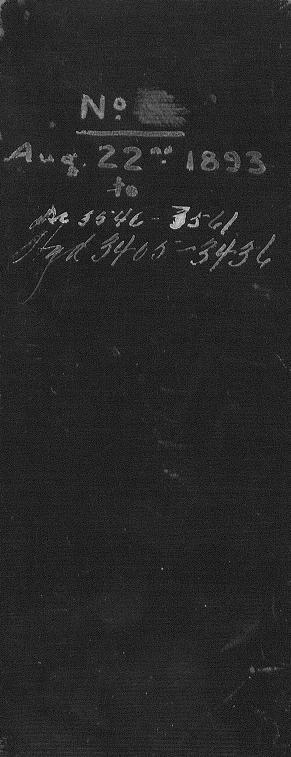 No
Aug. 22nd 1893
to
Sc 3546 - 3561
Jgd 3405 - 3436